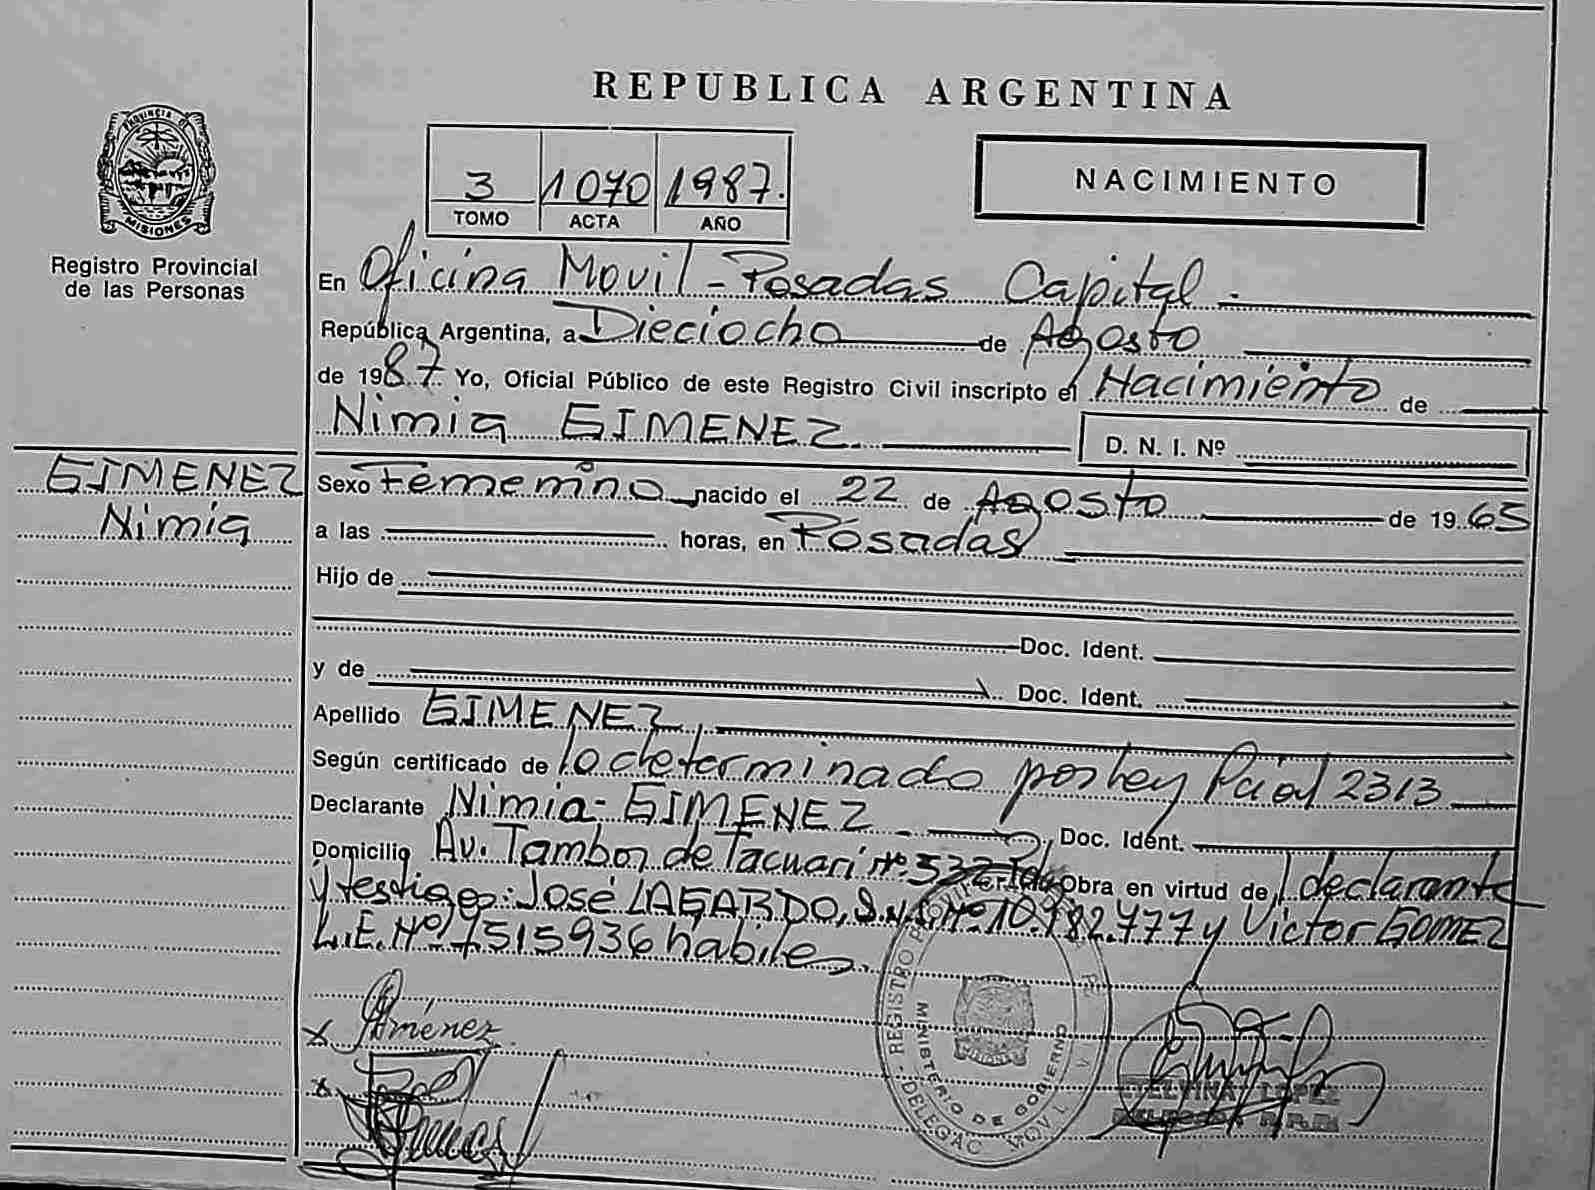 REPUBLICA ARGENTINA
PROVINCIA DE
MISIONES
Registro Provincial
de las Personas
3 1070 1987.
TOMO ACTA AÑO
NACIMIENTO
En Oficina Movil - Posadas Capital -
República Argentina, a Dieciocho de Agosto
de 1987. Yo, Oficial Público de este Registro Civil inscripto el Nacimiento de
Nimia GIMENEZ D. N. I. Nº
GIMENEZ
Nimia
Sexo Femenino nacido el 22 de Agosto de 1965
a las horas, en Posadas
Hijo de
Doc. Ident.
y de Doc. Ident.
Apellido GIMENEZ
Según certificado de lo determinado por Ley Pcial 2313
Declarante Nimia - GIMENEZ Doc. Ident.
Domicilio Av. Tambor de Tacuarí Nº 532 Obra en virtud de declarante
y testigos: José LAGARDO, D.N.I. Nº 10.182.777 y Victor GOMEZ
L.E. Nº 7515936 habiles
x Giménez
x
REGISTRO
MINISTERIO DE GOBIERNO
DELEGAC MOVIL
ETELVINA LOPEZ